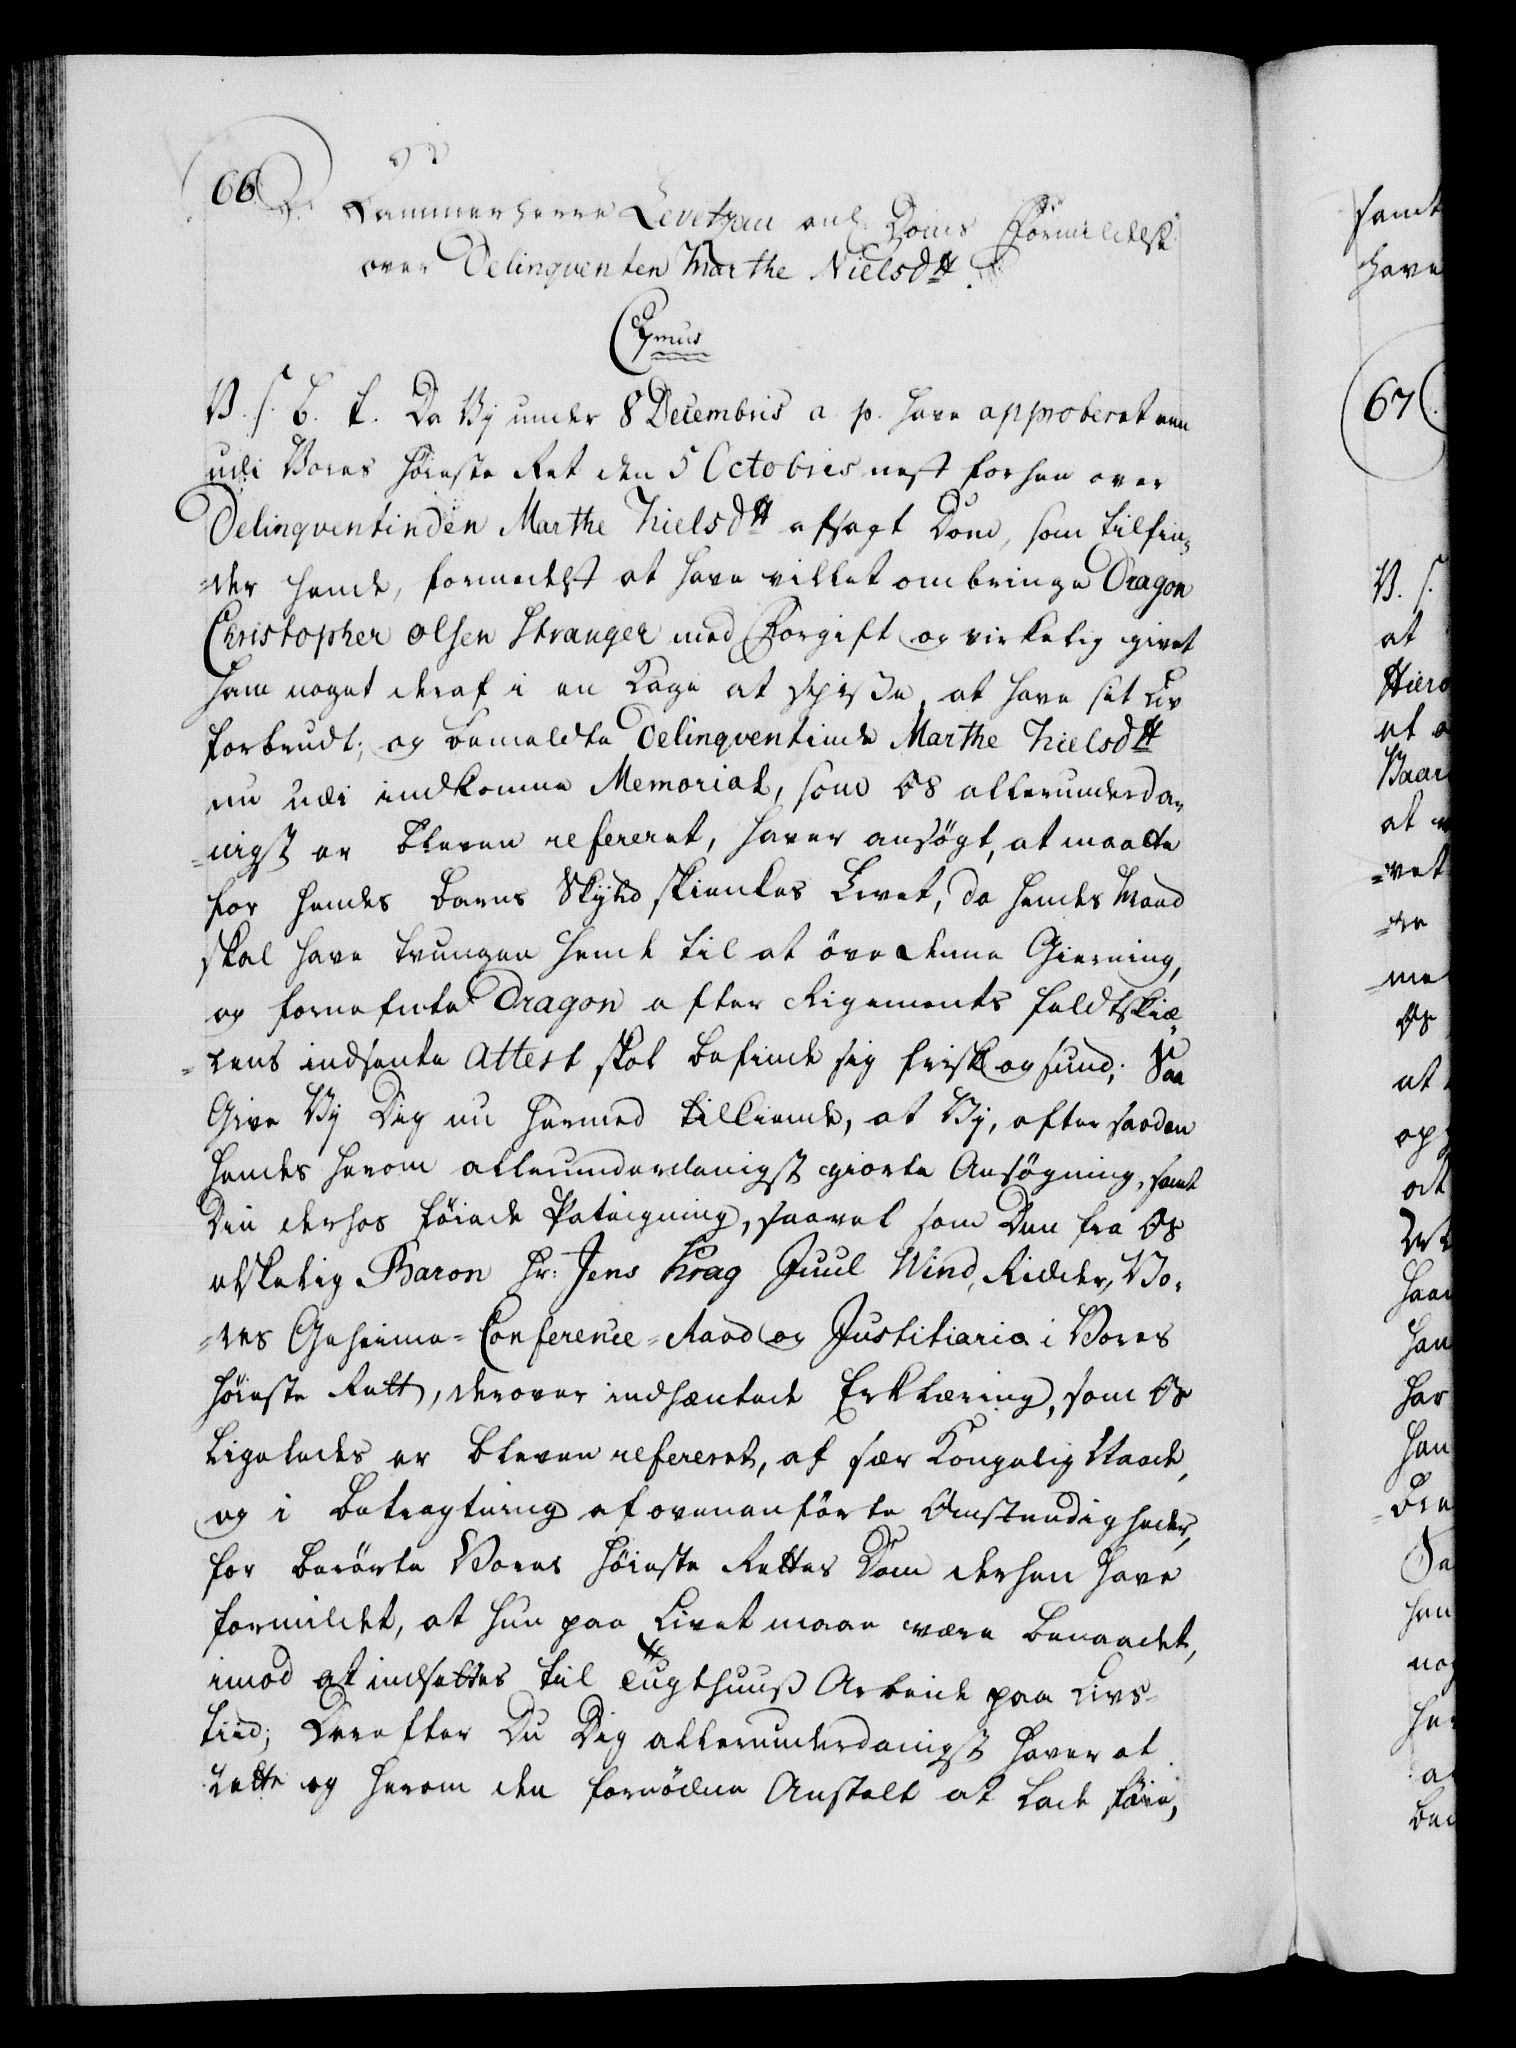 66.
Cammerherre Levetzau anl. Doms Formildelse
over Delinqventen Marthe Nielsdtt.
C7mus
V. S. G. T. Da Vy under 8 Decembris a. p. have approberet een
udi Vores Høieste Ret den 5 Octobris nest forhen over
Delinqventinden Marthe Nielsdtt afsagt Dom, som tilfin-
-der hende, formedelst at have villet ombringe Dragon
Christopher Olsen Stranger med Forgift og virkelig givet
ham noget deraf i en Kage at spiße, at have sit Liv
forbrudt; og bemeldte Delinqventinde Marthe Nielsdtt
nu udi indkomne Memorial, som Os allerunderda-
-nigst er bleven refereret, haver ansøgt, at maatte
for hendes Barns Skyld skienkes Livet, da hendes Mand
skal have tvungen hende til at øve denne Gierning,
og fornefnte Dragon efter Rigements Feldtskiæ-
-rens indsente Attest skal befinde sig frisk og sund; Saa
Give Vy Dig nu hermed tilkiende, at Vy, efter saadan
hendes herom allerunderdanigst giorte Ansøgning, samt
Din derhos føiede Pategning, saavel som Den fra Os
elskelig Baron Hr: Jens Krag Juul Wind, Ridder, Vo-
-res Geheime-Conference-Raad og Justitiario i Vores
Høieste Rett, derover indhentede Erklæring, som Os
ligeledes er bleven refereret, af sær Kongelig Naade,
og i Betragtning af ovenanførte Omstendigheder,
for berørte Vores Høieste Rettes Dom derhen have
formildet, at hun paa Livet maae være benaadet,
imod at indsettes til Tugthuuß Arbeide paa Livs-
tiid; Derefter Du Dig allerunderdanigst haver at
rette og herom den fornødne Anstalt at lade føie,
samt
have
67
V. S.
at
Hiero
et
Baar
at
-vet
-re
-me
Os
at
op
at
haar
han
har
han
-
Sa
han
nog
her